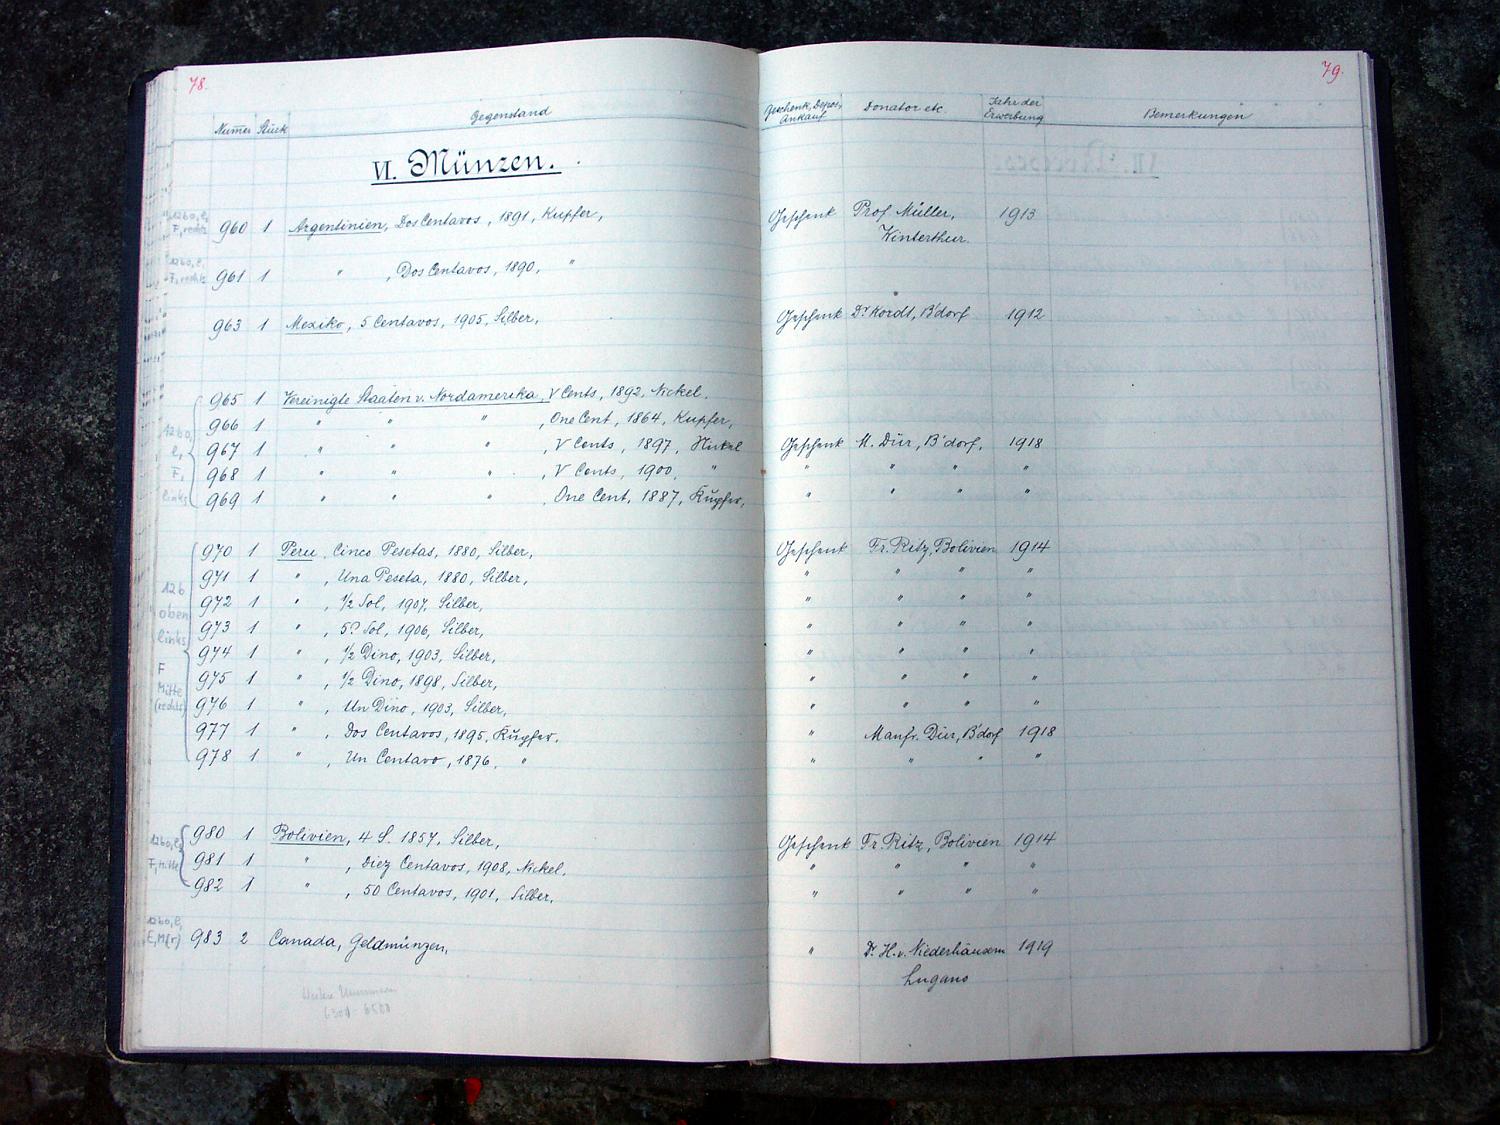 78.
79.
Numer Stück Gegenstand Geschenk, Depos, Ankauf Donator etc. Jahr der Erwerbung Bemerkungen
VI. Münzen.
960 1 Argentinien, Dos Centavos, 1891, Kupfer, Geschenk Prof. Müller, 1913
Winterthur.
961 1 " , Dos Centavos, 1890, "
963 1 Mexiko, 5 Centavos, 1905, Silber, Geschenk Dr Kordt, B'dorf 1912
965 1 Vereinigte Staaten v. Nordamerika, V Cents, 1892, Nickel.
966 1 " " " , One Cent, 1864, Kupfer,
967 1 " " " , V Cents, 1897, Nickel Geschenk M. Dür, B'dorf, 1918
968 1 " " " , V Cents, 1900, " " " " "
969 1 " " " , One Cent, 1887, Kupfer, " " " "
970 1 Peru, Cinco Pesetas, 1880, Silber, Geschenk Fr. Ritz, Bolivien 1914
971 1 " , Una Peseta, 1880, Silber, " " " "
972 1 " , 1/2 Sol, 1907, Silber, " " " "
973 1 " , 5? Sol, 1906, Silber, " " " "
974 1 " , 1/2 Dino, 1903, Silber, " " " "
975 1 " , 1/2 Dino, 1898, Silber, " " " "
976 1 " , Un Dino, 1903, Silber, " " " "
977 1 " , Dos Centavos, 1895, Kupfer, " Manfr. Dür, B'dorf 1918
978 1 " , Un Centavo, 1876, " " " " "
126
oben
links
F
Mitte
(rechts)
980 1 Bolivien, 4 S. 1857, Silber, Geschenk Fr. Ritz, Bolivien 1914
981 1 " , Diez Centavos, 1908, Nickel, " " " "
982 1 " , 50 Centavos, 1901, Silber, " " " "
983 2 Canada, Geldmünzen, " Dr. H. v. Niederhäusern 1919
Lugano